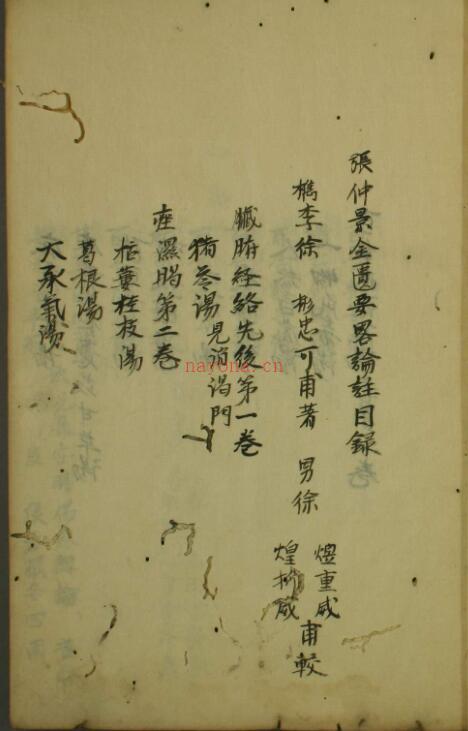 張仲景金匱要畧論註目録
檇李徐彬忠可甫著 男徐
煜重威
煌 威
甫較
臟腑経絡先後第一巻
猪苓湯見消渇門
痓濕暍第二巻
栝蔞桂枝湯
葛根湯
大承氣湯
nayona.cn